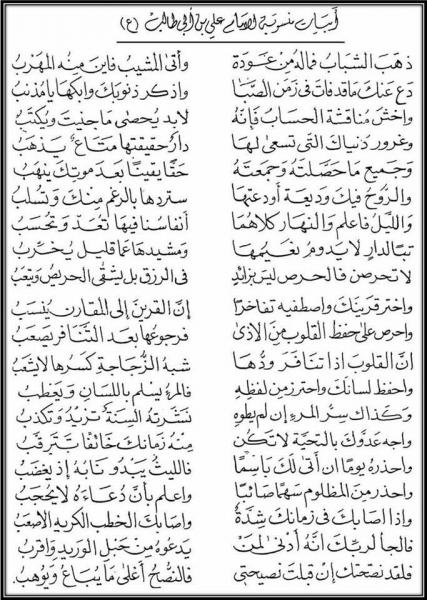 أبيات منسوبة للإمام علي بن أبي طالب (ع)
ذهب الشباب فماله من عودة وأتى المشيب فأين منه المهرب
دع عنك ما قد فات في زمن الصبا واذكر ذنوبك وابكها يا مذنب
واخش مناقشة الحساب فإنه لابد يحصى ما جنيت ويكتب
وغرور دنياك التي تسعى لها دار حقيقتها متاع يذهب
وجميع ما حصلته وجمعته حقا يقينا بعد موتك ينهب
والروح فيك وديعة أودعتها ستردها بالرغم منك وتسلب
والليل فاعلم والنهار كلاهما أنفاسنا فيها تعد وتحسب
تبا لدار لا يدوم نعيمها ومشيدها عما قليل يخرب
لا تحرصن فالحرص ليس بزائد في الرزق بل يشقى الحريص ويتعب
واختر قرينك واصطفيه تفاخرا إن القرين إلى المقارن ينسب
واحرص على حفظ القلوب من الأذى فرجوعها بعد التنافر يصعب
ان القلوب اذا تنافر ودها شبه الزجاجة كسرها لا يشعب
واحفظ لسانك واحترز من لفظه فالمرء يسلم باللسان ويعطب
وكذاك سر المرء إن لم يطوه نشرته السنة تزيد وتكذب
واجه عدوك بالتحية لا تكن منه زمانك خائفا تترقب
واحذره يوما ان أتى لك باسما فالليث يبدو نابه إذ يغضب
واحذر من المظلوم سهما صائبا واعلم بأن دعاءه لا يحجب
وإذا اصابك في زمانك شدة واصابك الخطب الكريه الأصعب
فالجأ لربك انه أدنى لمن يدعوه من حبل الوريد واقرب
فلقد نصحتك إن قبلت نصيحتي فالنصح أغلى ما يباع ويوهب